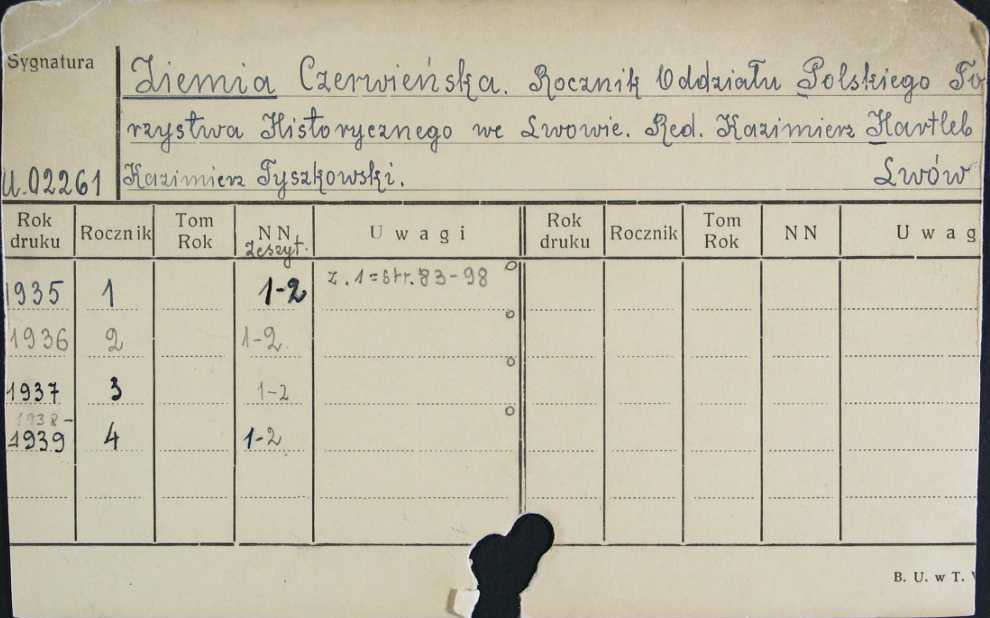 Sygnatura
Ziemia Czerwieńska. Rocznik Oddziału Polskiego To
rzystwa Historycznego we Lwowie. Red. Kazimierz Hartleb
U.02261 Kazimierz Tyszkowski. Lwów
Rok druku Rocznik Tom Rok NN Zeszyt. Uwagi Rok druku Rocznik Tom Rok NN Uwag
1935 1 1-2 z. 1 = str. 83-98
1936 2 1-2.
1937 3 1-2
1938-
1939 4 1-2
B. U. w T.